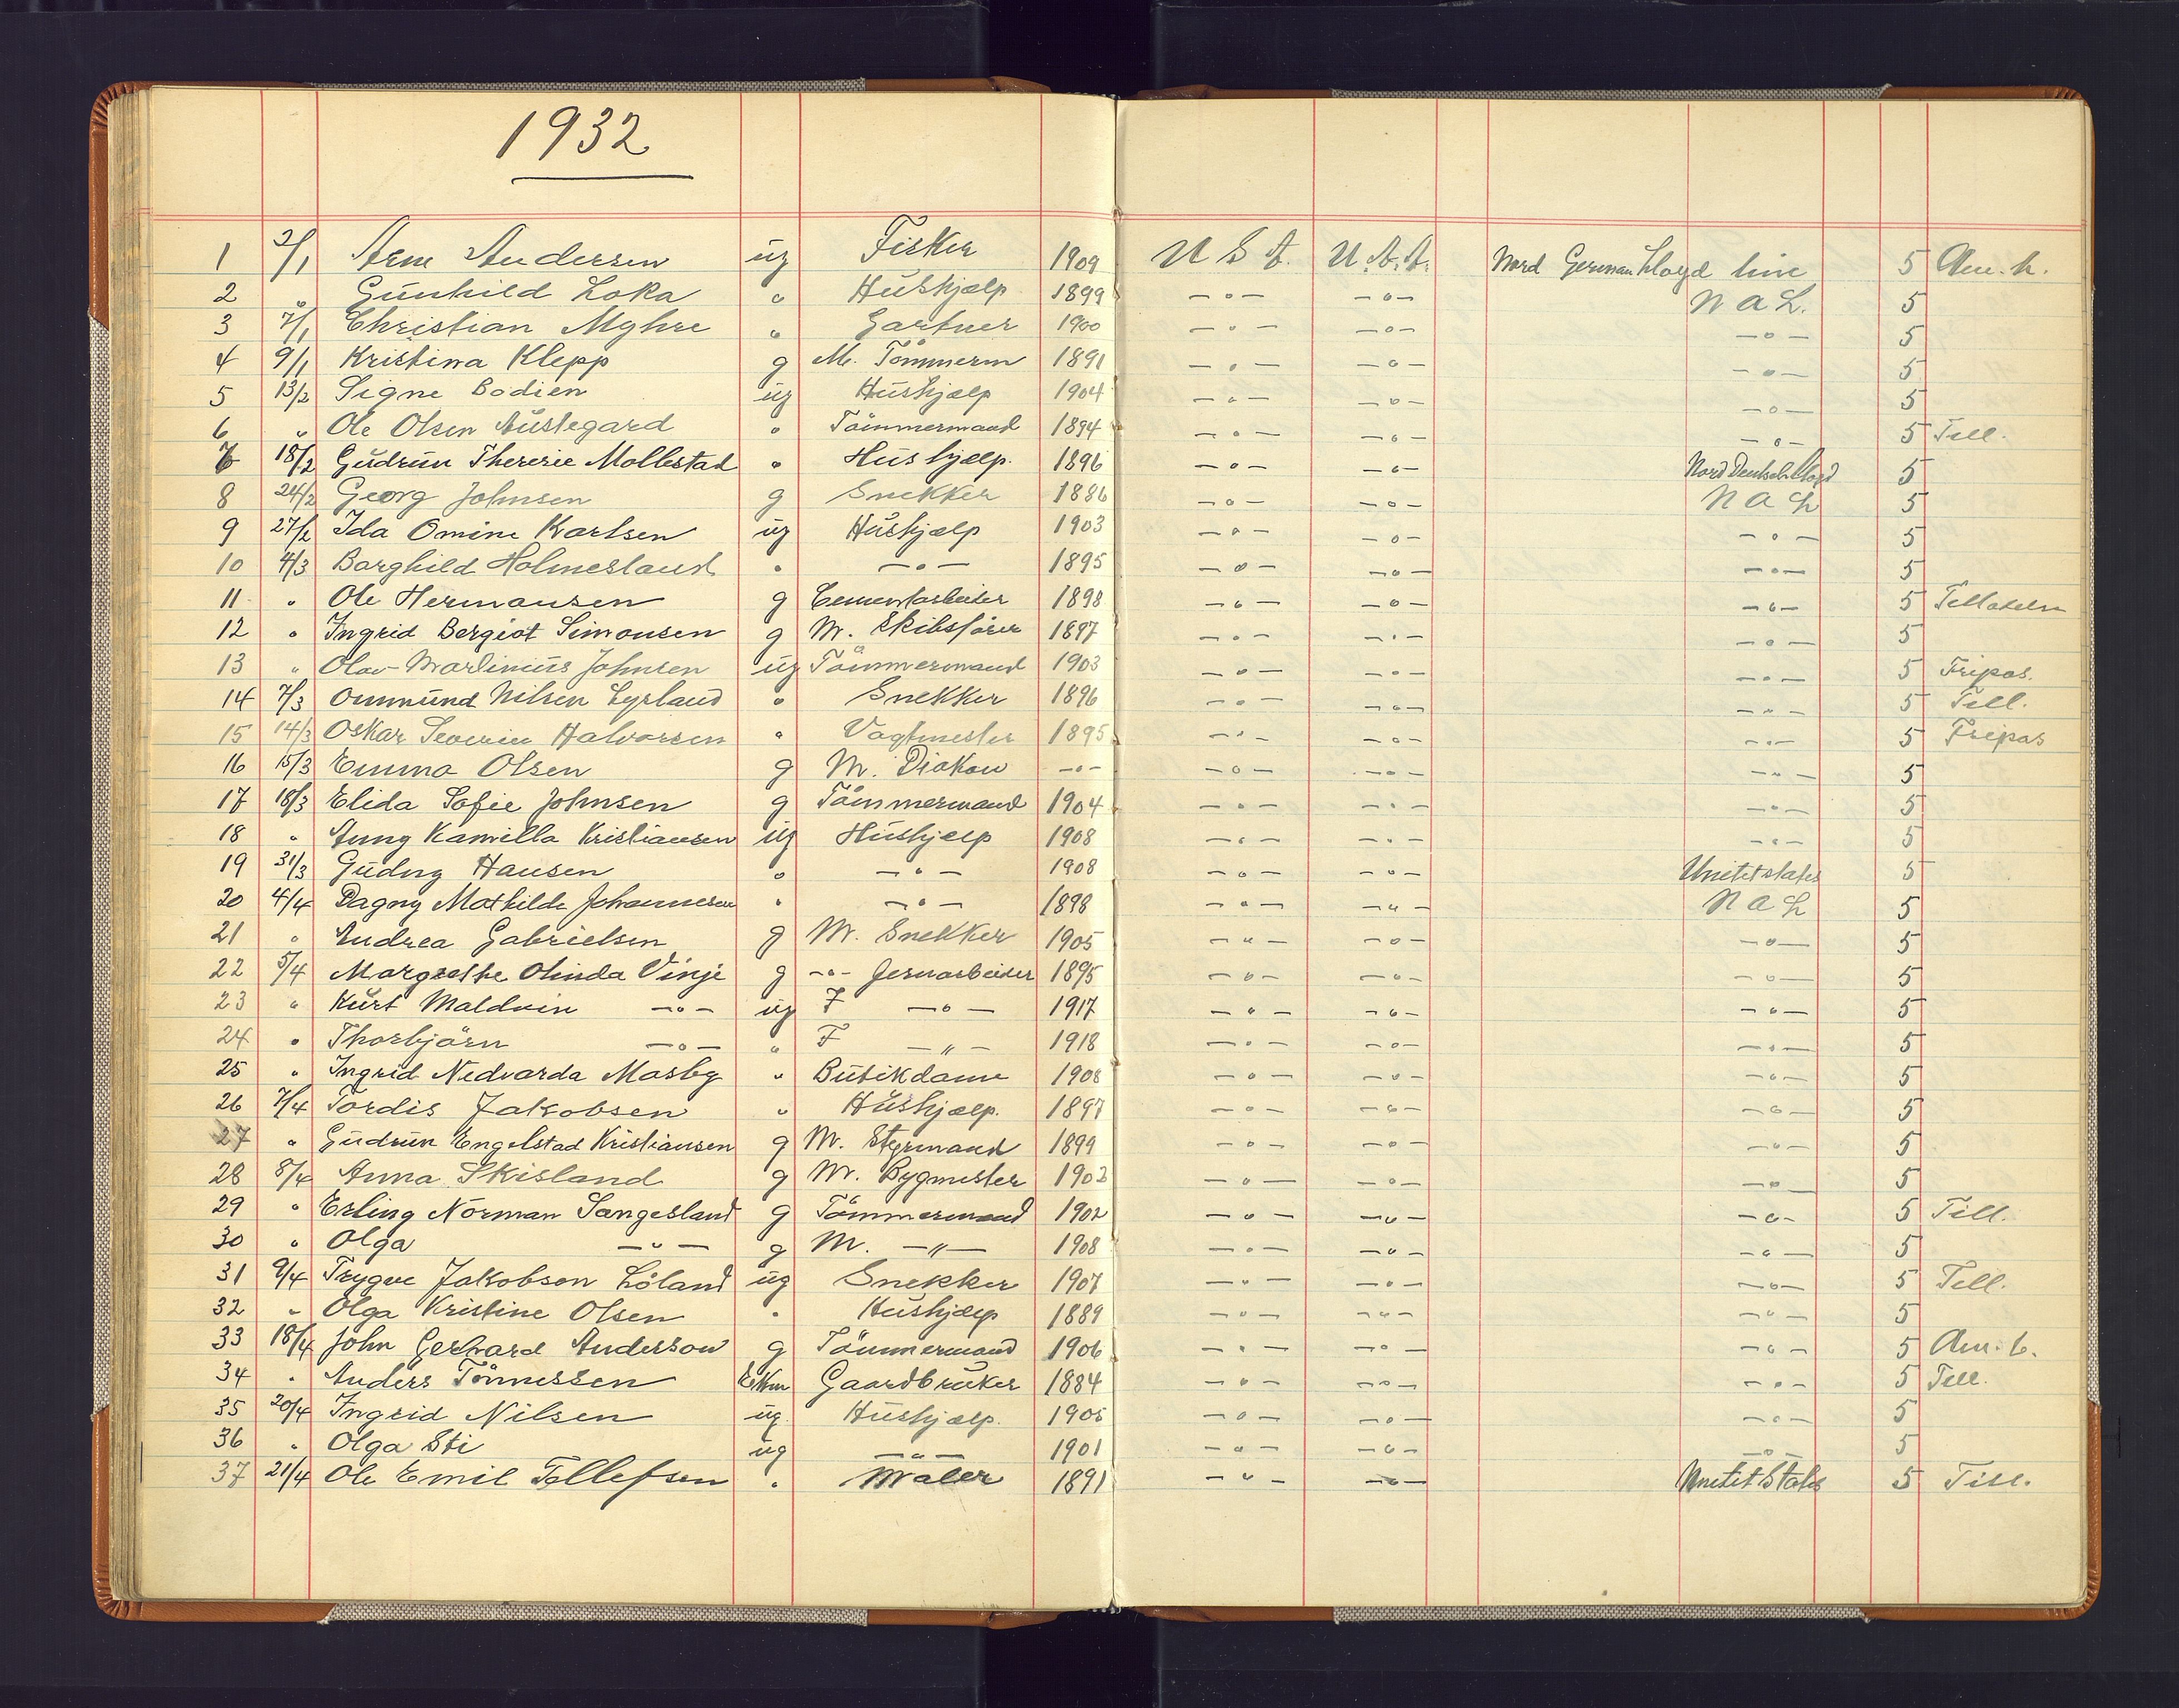 1932
1 2/1 Arne Andersen ug Fisker 1909 U S A. U.S.A. Nord German Lloyd line 5 Am. b.
2 " Gunhild Loka " Hushjælp 1899 -"- -"- N A L. 5
3 7/1 Christian Myhre " Gartner 1900 -"- -"- -"- 5
4 9/1 Kristina Klepp g M. Tömmerm 1891 -"- -"- -"- 5
5 13/2 Signe Bodien ug Hushjælp 1904 -"- -"- -"- 5
6 " Ole Olsen Austegard " Tömmermand 1894 -"- -"- -"- 5 Till.
7 18/2 Gudrun Therese Mollestad " Hushjælp. 1896 -"- -"- Nord Deutsch Lloyd 5
8 24/2 Georg Johnsen g Snekker 1886 -"- -"- N A L 5
9 27/2 Ida Omine Karlsen ug Hushjælp 1903 -"- -"- -"- 5
10 4/3 Borghild Holmesland " -"- 1895 -"- -"- -"- 5
11 " Ole Hermansen g Cementarbeider 1898 -"- -"- -"- 5
12 " Ingrid Bergiot Simonsen g M. Skibsförer 1897 -"- -"- -"- 5
13 " Olav Martinius Johnsen ug Tömmermand 1903 -"- -"- -"- 5 Fripas.
14 7/3 Ommund Nilsen Lyrland " Snekker 1896 -"- -"- -"- 5 Till.
15 14/3 Oskar Severin Halvorsen " Vagtmester 1895 -"- -"- -"- 5 Fripas
16 15/3 Emma Olsen g M. Diakon -"- -"- -"- -"- 5
17 18/3 Elida Sofie Johnsen g Tömmermand 1904 -"- -"- -"- 5
18 " Anny Kamilla Kristiansen ug Hushjelp 1908 -"- -"- -"- 5
19 31/3 Gudny Hansen " -"- 1908 -"- -"- Unitet states 5
20 4/4 Dagny Mathilde Johannesen " -"- 1898 -"- -"- N A L 5
21 " Andrea Gabrielsen g M. Snekker 1905 -"- -"- -"- 5
22 5/4 Margrethe Olinda Vinje g -"- Jernarbeider 1895 -"- -"- -"- 5
23 " Kurt Maldvin -"- ug F -"- 1917 -"- -"- -"- 5
24 " Thorbjörn -"- " F -"- 1918 -"- -"- -"- 5
25 " Ingrid Nedvarda Mosby " Butikdame 1908 -"- -"- -"- 5
26 7/4 Tordis Jakobsen " Hushjælp. 1897 -"- -"- -"- 5
27 " Gudrun Engelstad Kristiansen g M. Styrmand 1899 -"- -"- -"- 5
28 8/4 Anna Skisland g M. Bygmester 1903 -"- -"- -"- 5
29 " Erling Norman Sangesland g Tömmermand 1902 -"- -"- -"- 5 Till.
30 " Olga -"- g M. -"- 1908 -"- -"- -"- 5
31 9/4 Trygve Jakobsen Löland ug Snekker 1907 -"- -"- -"- 5 Till.
32 " Olga Kristine Olsen " Hushjælp 1889 -"- -"- -"- 5
33 18/4 John Gerhard Anderson g Tömmermand 1906 -"- -"- -"- 5 Am. b.
34 " Anders Tönnessen Gaardbruker 1884 -"- -"- -"- 5 Till.
35 20/4 Ingrid Nilsen ug. Hushjælp. 1905 -"- -"- -"- 5
36 " Olga Sti ug -"- 1901 -"- -"- -"- 5
37 21/4 Ole Emil Tellefsen " Maler 1891 -"- -"- Unitet States 5 Till.